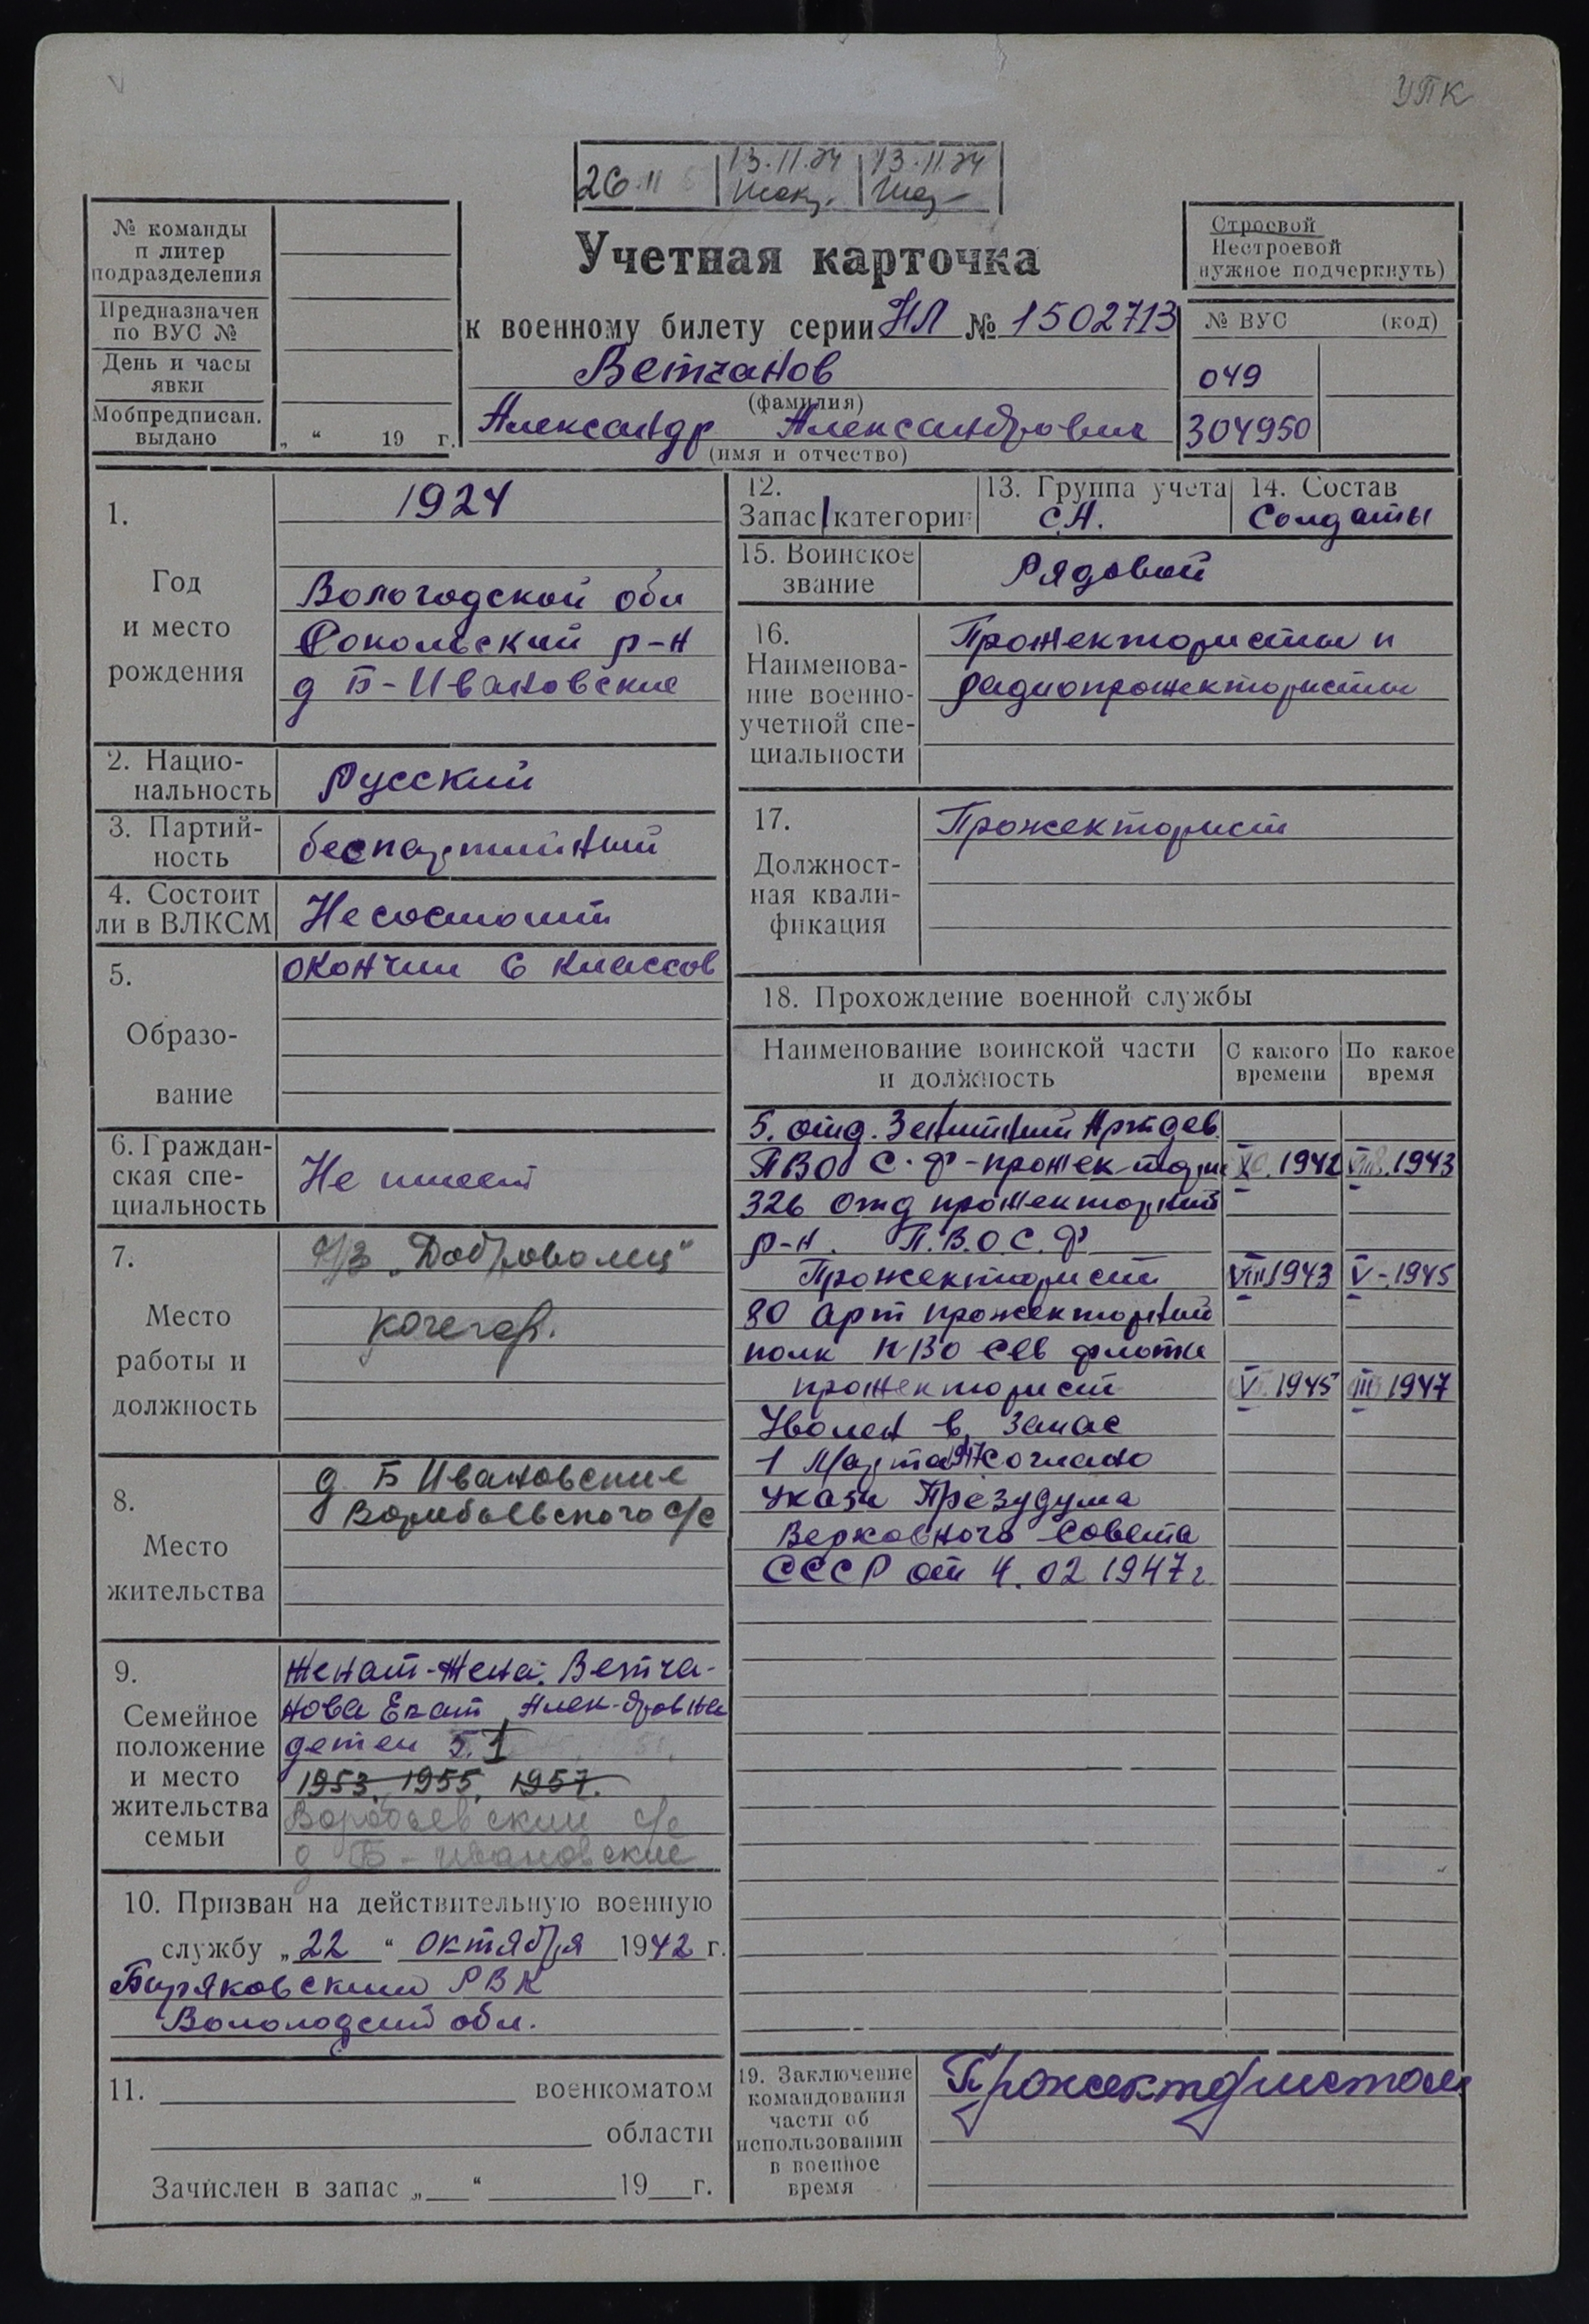 УПК
26.11
13.11.84 13.11.84
Учетная карточка
к военному билету серии НЛ № 1502713
Ветчанов
(фамилия)
Александр Александрович
(имя и отчество)
№ команды
и литер
подразделения
Предназначен
по ВУС №
День и часы
явки
Мобпредписан.
выдано „ “ 19 г.
Строевой
Нестроевой
нужное подчеркнуть)
№ ВУС (код)
049
304950
1.
Год
и место
рождения
1924
Вологодской обл
Сокольский р-н
д Б-Ивановские
2. Нацио-
нальность
Русский
3. Партий-
ность
беспартийный
4. Состоит
ли в ВЛКСМ
Не состоит
5.
Образо-
вание
окончил 6 классов
6. Граждан-
ская спе-
циальность
Не имеет
7.
Место
работы и
должность
„Доброволец“
кочегар.
8.
Место
жительства
д. Б Ивановские
Воробьевского с/с
9.
Семейное
положение
и место
жительства
семьи
Женат-Жена: Ветча-
нова Екат Алек-дровна
детей 5. 1
1953, 1955, 1957.
Воробьевский с/с
д Б-Ивановские
10. Призван на действительную военную
службу „22“ октября 1942 г.
Биряковским РВК
Вологодской обл.
11. военкоматом
области
Зачислен в запас „ “ 19 г.
12.
Запас/категории
13. Группа учета
С.А.
14. Состав
Солдаты
15. Воинское
звание
Рядовой
16.
Наименова-
ние военно-
учетной спе-
циальности
Прожектористы и
радиопрожектористы
17.
Должност-
ная квали-
фикация
Прожекторист
18. Прохождение военной службы
Наименование воинской части
и должность
С какого
времени
По какое
время
5. отд. Зенитный Артдев.
ПВО С.Ф-прожек-тори X. 1942 VIII. 1943
326 отд прожекторный
р-н. П.В.О.С.Ф
Прожекторист VIII 1943 V-1945
80 Арт прожекторный
полк ПВО Сев флота
прожекторист V 1945 III 1947
Уволен в запас
1 Марта 1947 Согласно
Указа Презудума
Верховного Совета
СССР от 4.02 1947 г
19. Заключение
командования
части об
использовании
в военное
время
Прожектористом